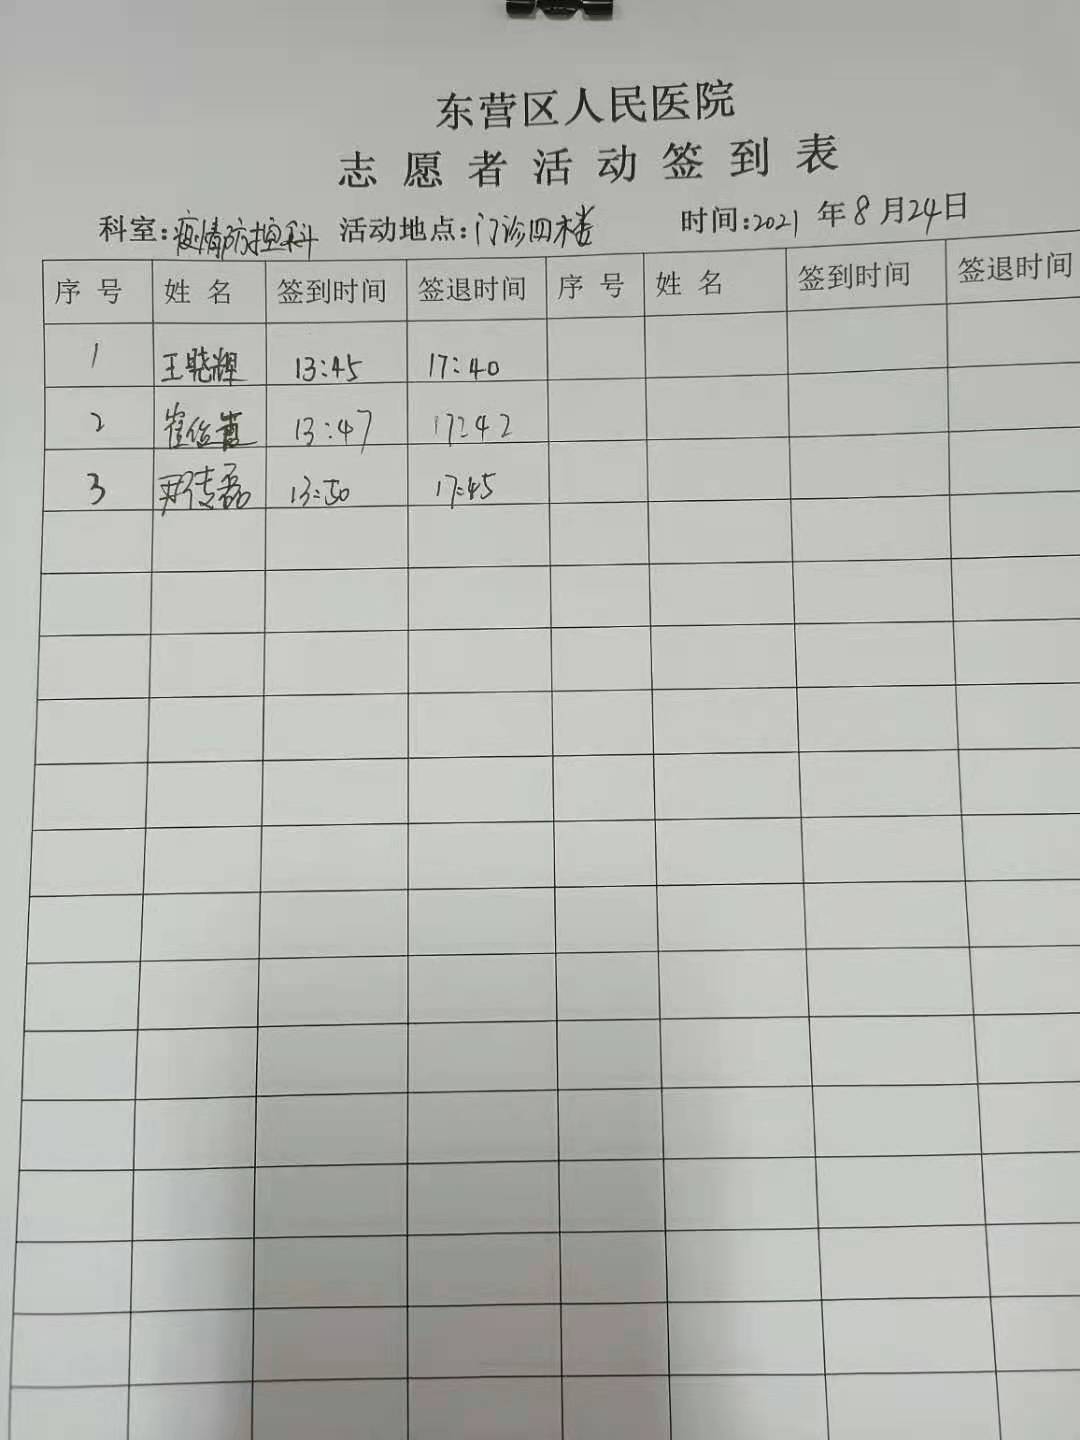 东营区人民医院
志愿者活动签到表
科室:疫情防控科 活动地点:门诊四楼 时间:2021年8月24日
序号 姓名 签到时间 签退时间 序号 姓名 签到时间 签退时间
1 王晓辉 13:45 17:40
2 崔 13:47 17:42
3 13:50 17:45